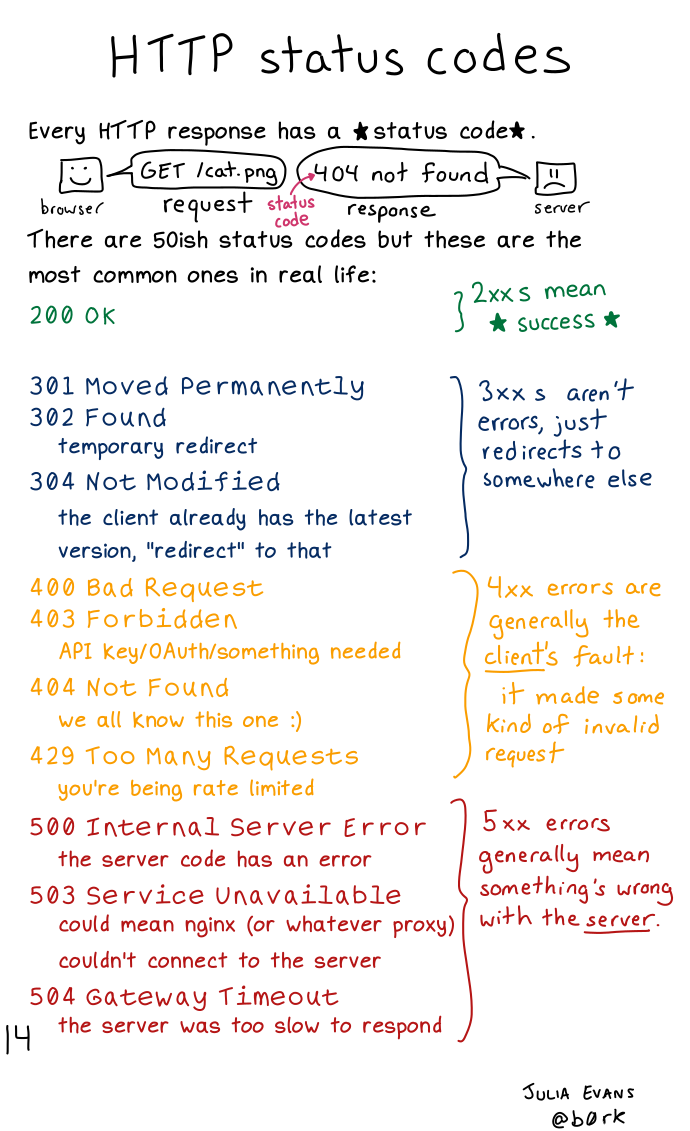 HTTP status codes
Every HTTP response has a ★status code★.
GET /cat.png
404 not found
browser
request
status
code
response
server
There are 50ish status codes but these are the
most common ones in real life:
200 OK
2xx s mean
★ success ★
301 Moved Permanently
302 Found
temporary redirect
304 Not Modified
the client already has the latest
version, "redirect" to that
3xx s aren't
errors, just
redirects to
somewhere else
400 Bad Request
403 Forbidden
API key/OAuth/something needed
404 Not Found
we all know this one :)
429 Too Many Requests
you're being rate limited
4xx errors are
generally the
client's fault:
it made some
kind of invalid
request
500 Internal Server Error
the server code has an error
503 Service Unavailable
could mean nginx (or whatever proxy)
couldn't connect to the server
504 Gateway Timeout
the server was too slow to respond
5xx errors
generally mean
something's wrong
with the server.
14
JULIA EVANS
@b0rk